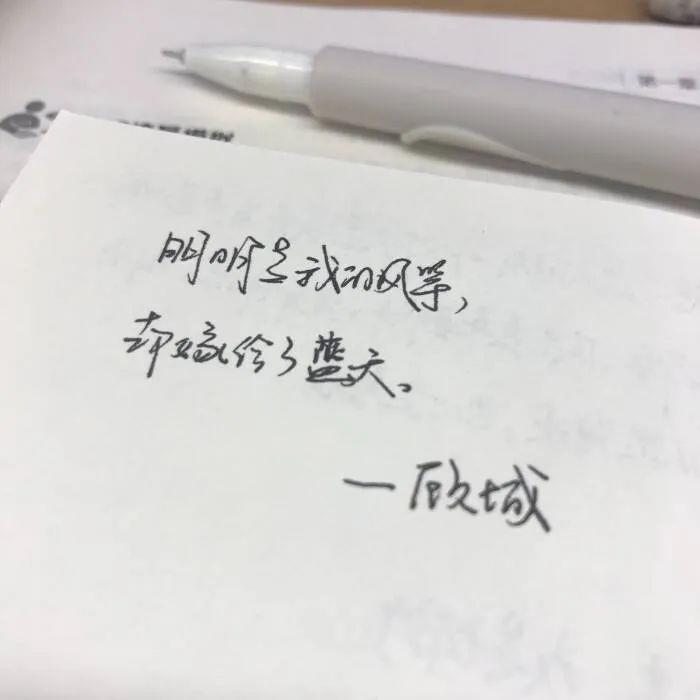 明明是我的风筝,
却嫁给了蓝天。
—顾城